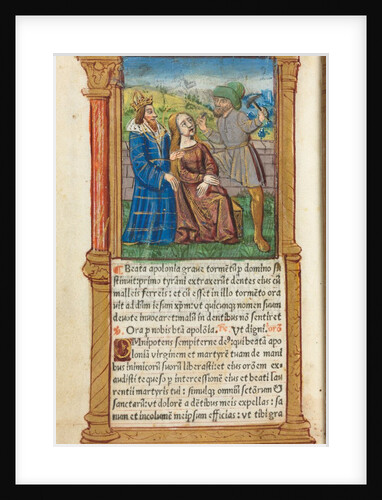 Beata apolonia grave tormētū p domino su
stinuit: primo tyrāni extraxerūt dentes eius cū
malleis ferreis: et cū esset in illo tormēto ora
uit ad dñm iesum xp̄m: vt quicūqꝫ nomen suum
deuote inuocaret: malū in dentibus nō sentiret
v̄. Ora p nobis btā apolōia. Rꝫ. Vt digni. orō
OMnipotens sempiterne de⁹: qui beatā apo
loniā virginem et martyrē tuam de mani
bus inimicorū suorū liberasti: et eius orōem ex
audisti te queso p intercessionē eius et beati lau
rentii martyris tui: simulqꝫ omniū sctōrum
sanctarū: vt dolorē a dētibus meis expellas: sa
num et incolumē me ipsum efficias: vt tibi gra